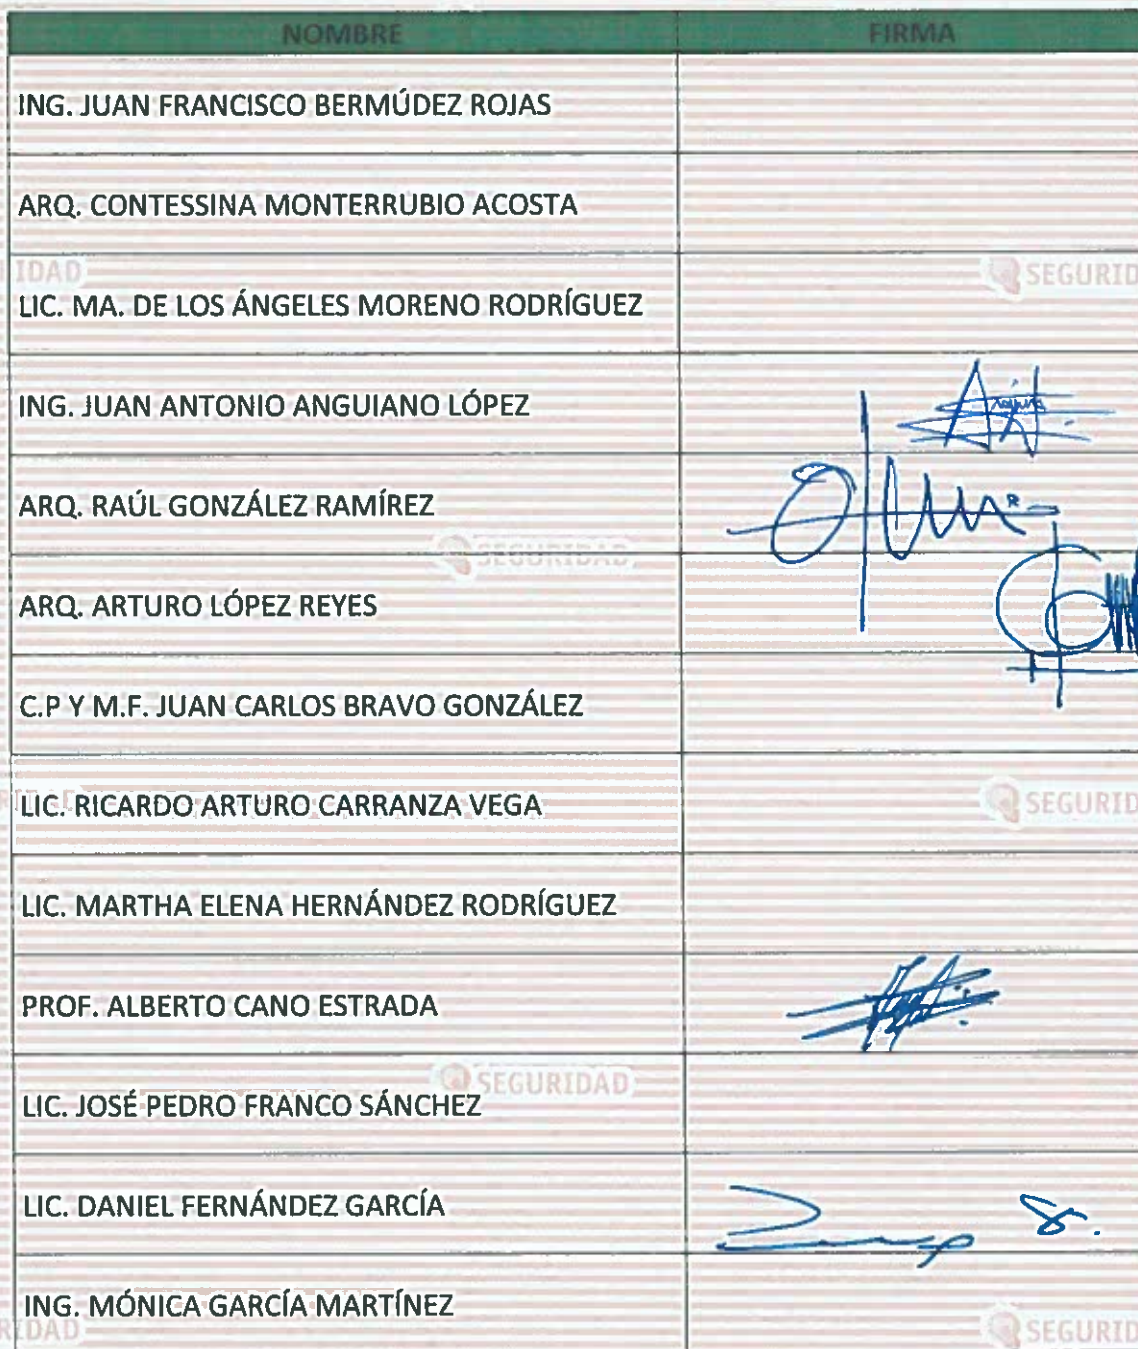 NOMBRE FIRMA
ING. JUAN FRANCISCO BERMÚDEZ ROJAS
ARQ. CONTESSINA MONTERRUBIO ACOSTA
IDAD SEGURID
LIC. MA. DE LOS ÁNGELES MORENO RODRÍGUEZ
ING. JUAN ANTONIO ANGUIANO LÓPEZ
ARQ. RAÚL GONZÁLEZ RAMÍREZ
SEGURIDAD
ARQ. ARTURO LÓPEZ REYES
C.P Y M.F. JUAN CARLOS BRAVO GONZÁLEZ
LIC. RICARDO ARTURO CARRANZA VEGA
SEGURID
LIC. MARTHA ELENA HERNÁNDEZ RODRÍGUEZ
PROF. ALBERTO CANO ESTRADA
SEGURIDAD
LIC. JOSÉ PEDRO FRANCO SÁNCHEZ
LIC. DANIEL FERNÁNDEZ GARCÍA
ING. MÓNICA GARCÍA MARTÍNEZ
RIDAD SEGURID